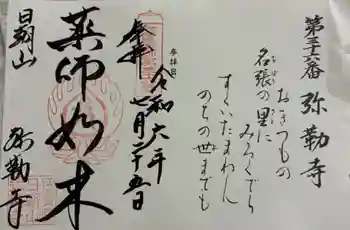 第三十六番 弥勒寺
おきつもの
名張の里に
みろくでら
すくいたまわん
のちの世までも
参拝日
令和六年
七月二十五日
奉拝
薬師如来
日朝山
弥勒寺